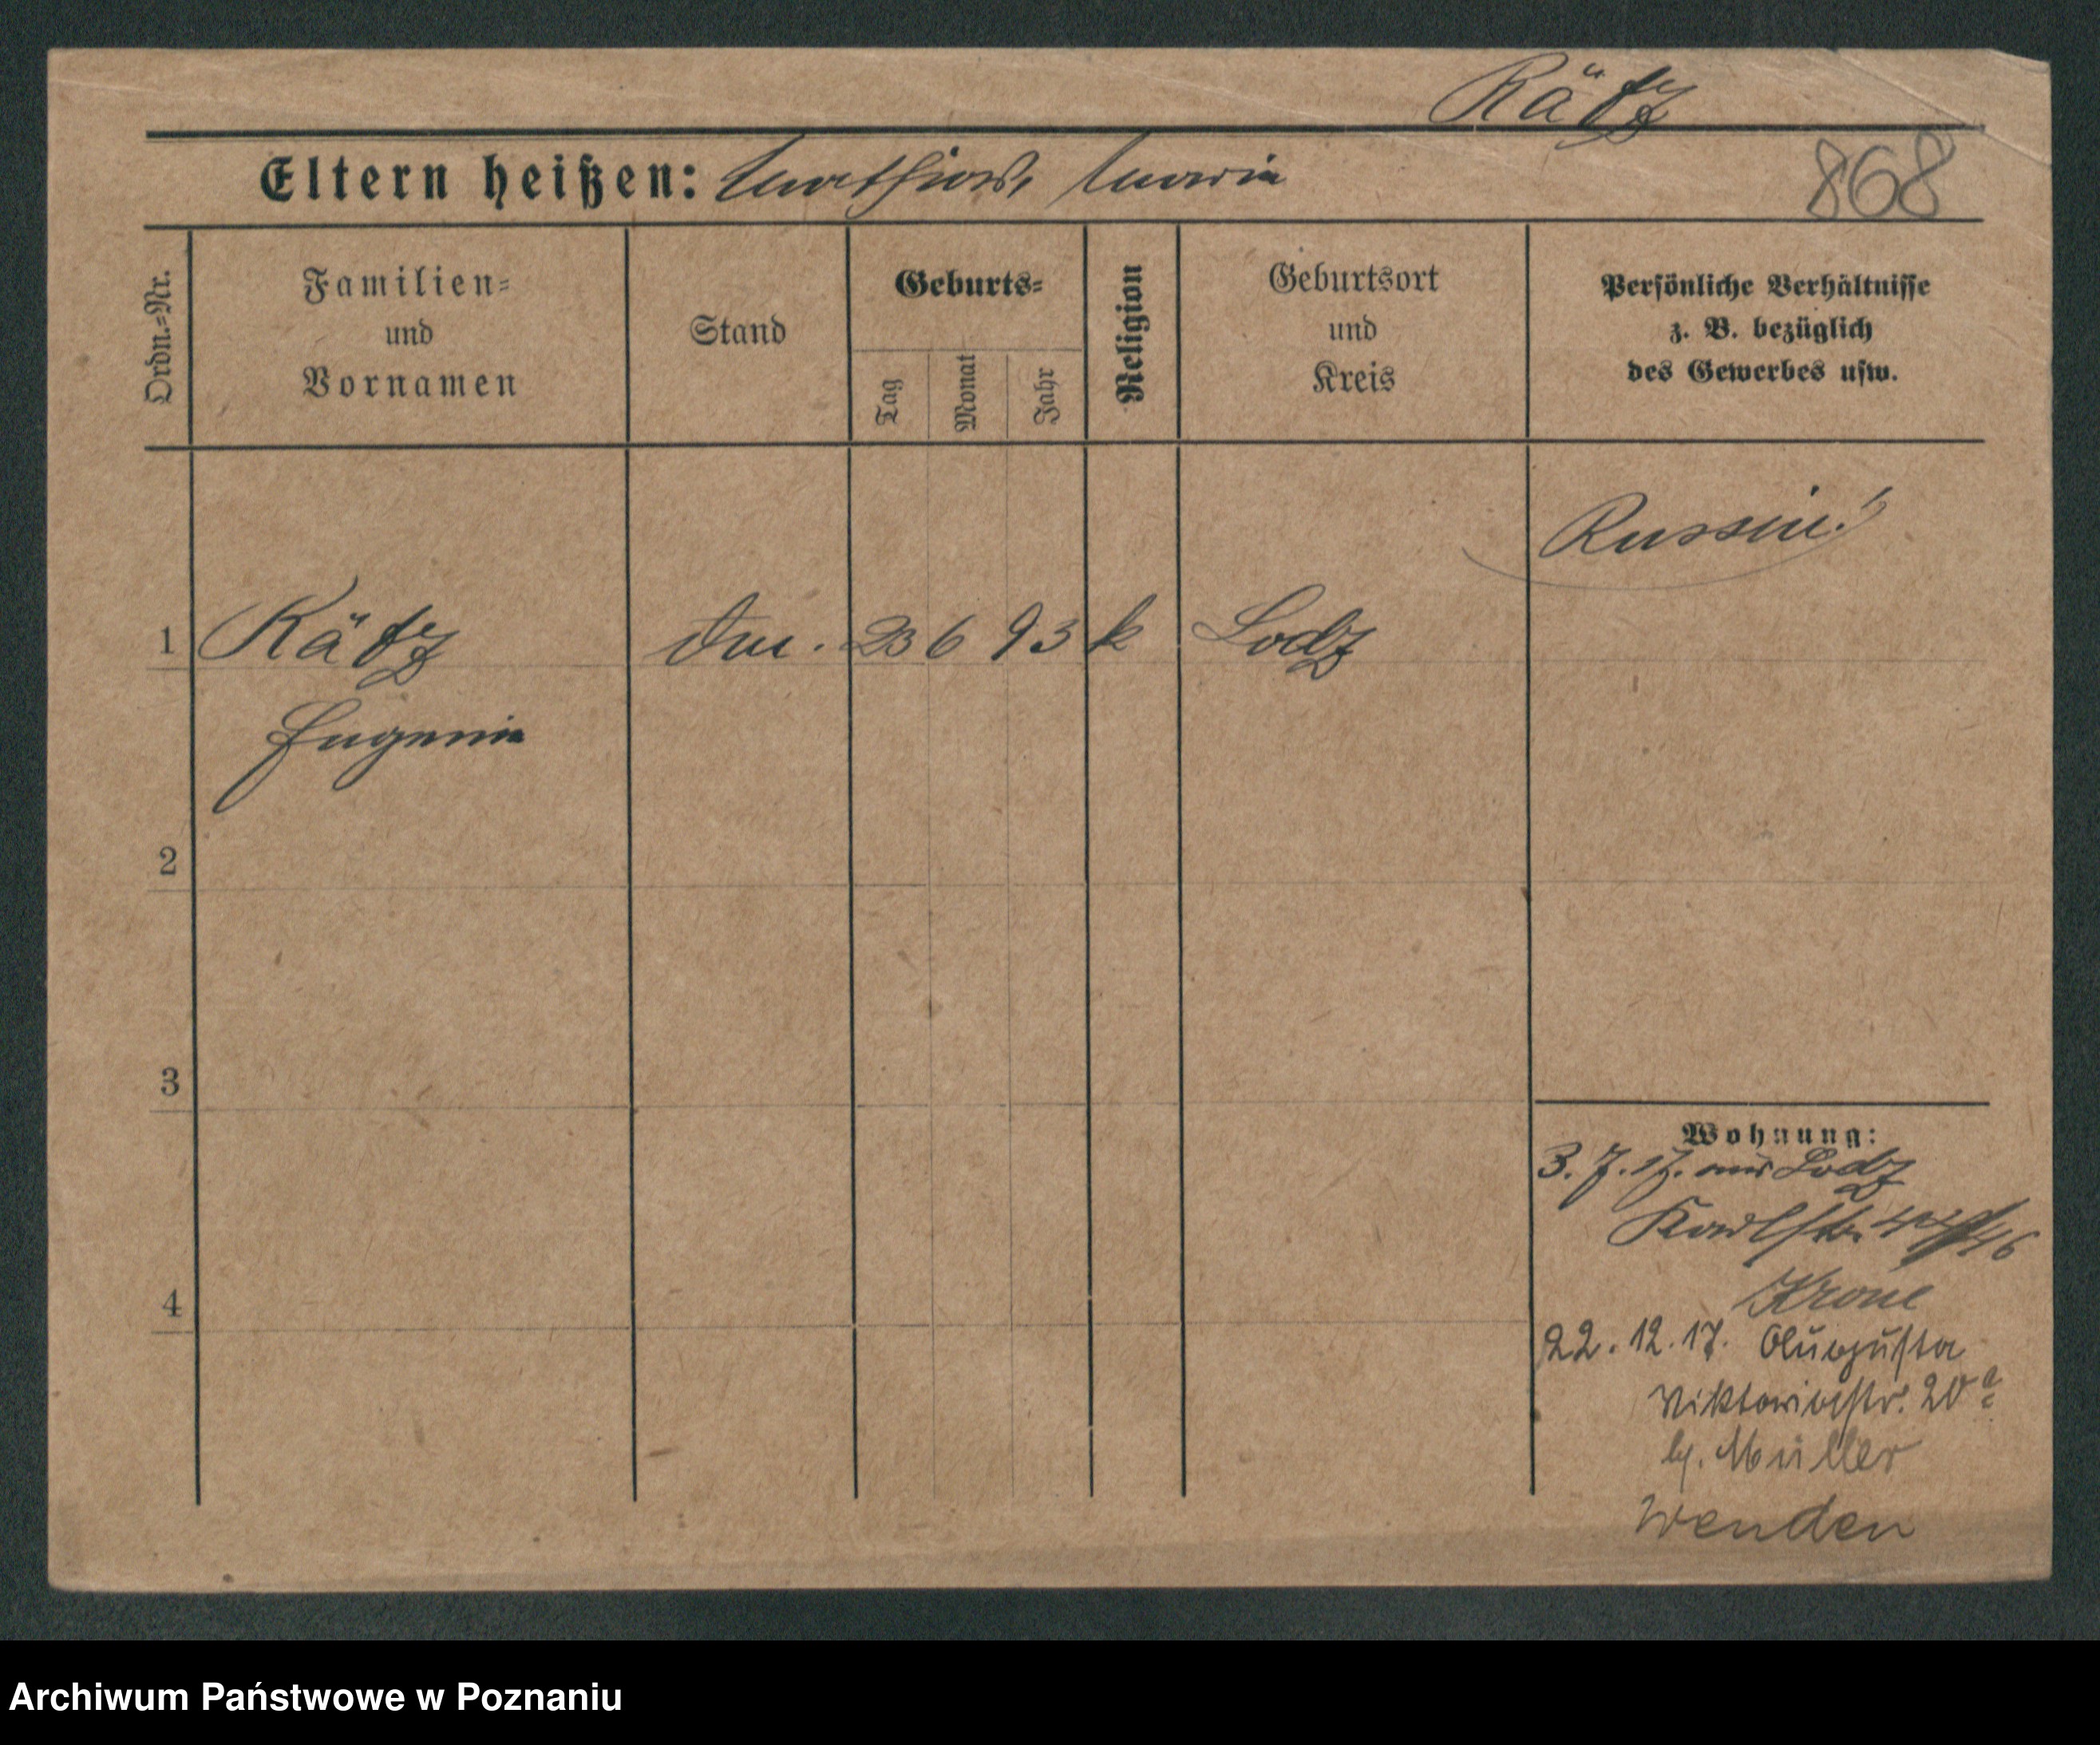 Rätz
Eltern heißen: Mathias, Maria
868
Ordn.=Nr.
Familien=
und
Vornamen
Stand
Geburts=
Tag
Monat
Jahr
Religion
Geburtsort
und
Kreis
Persönliche Verhältnisse
z. B. bezüglich
des Gewerbes usw.
Russin!
1 Rätz 23 6 93 k Lodz
Eugenia
2
3
4
Wohnung:
3. 7. 17. aus Lodz
Karlstr. 46
Krone
22. 12. 17. Augusta
Viktoriastr. 20a
b. Müller
wenden
Archiwum Państwowe w Poznaniu